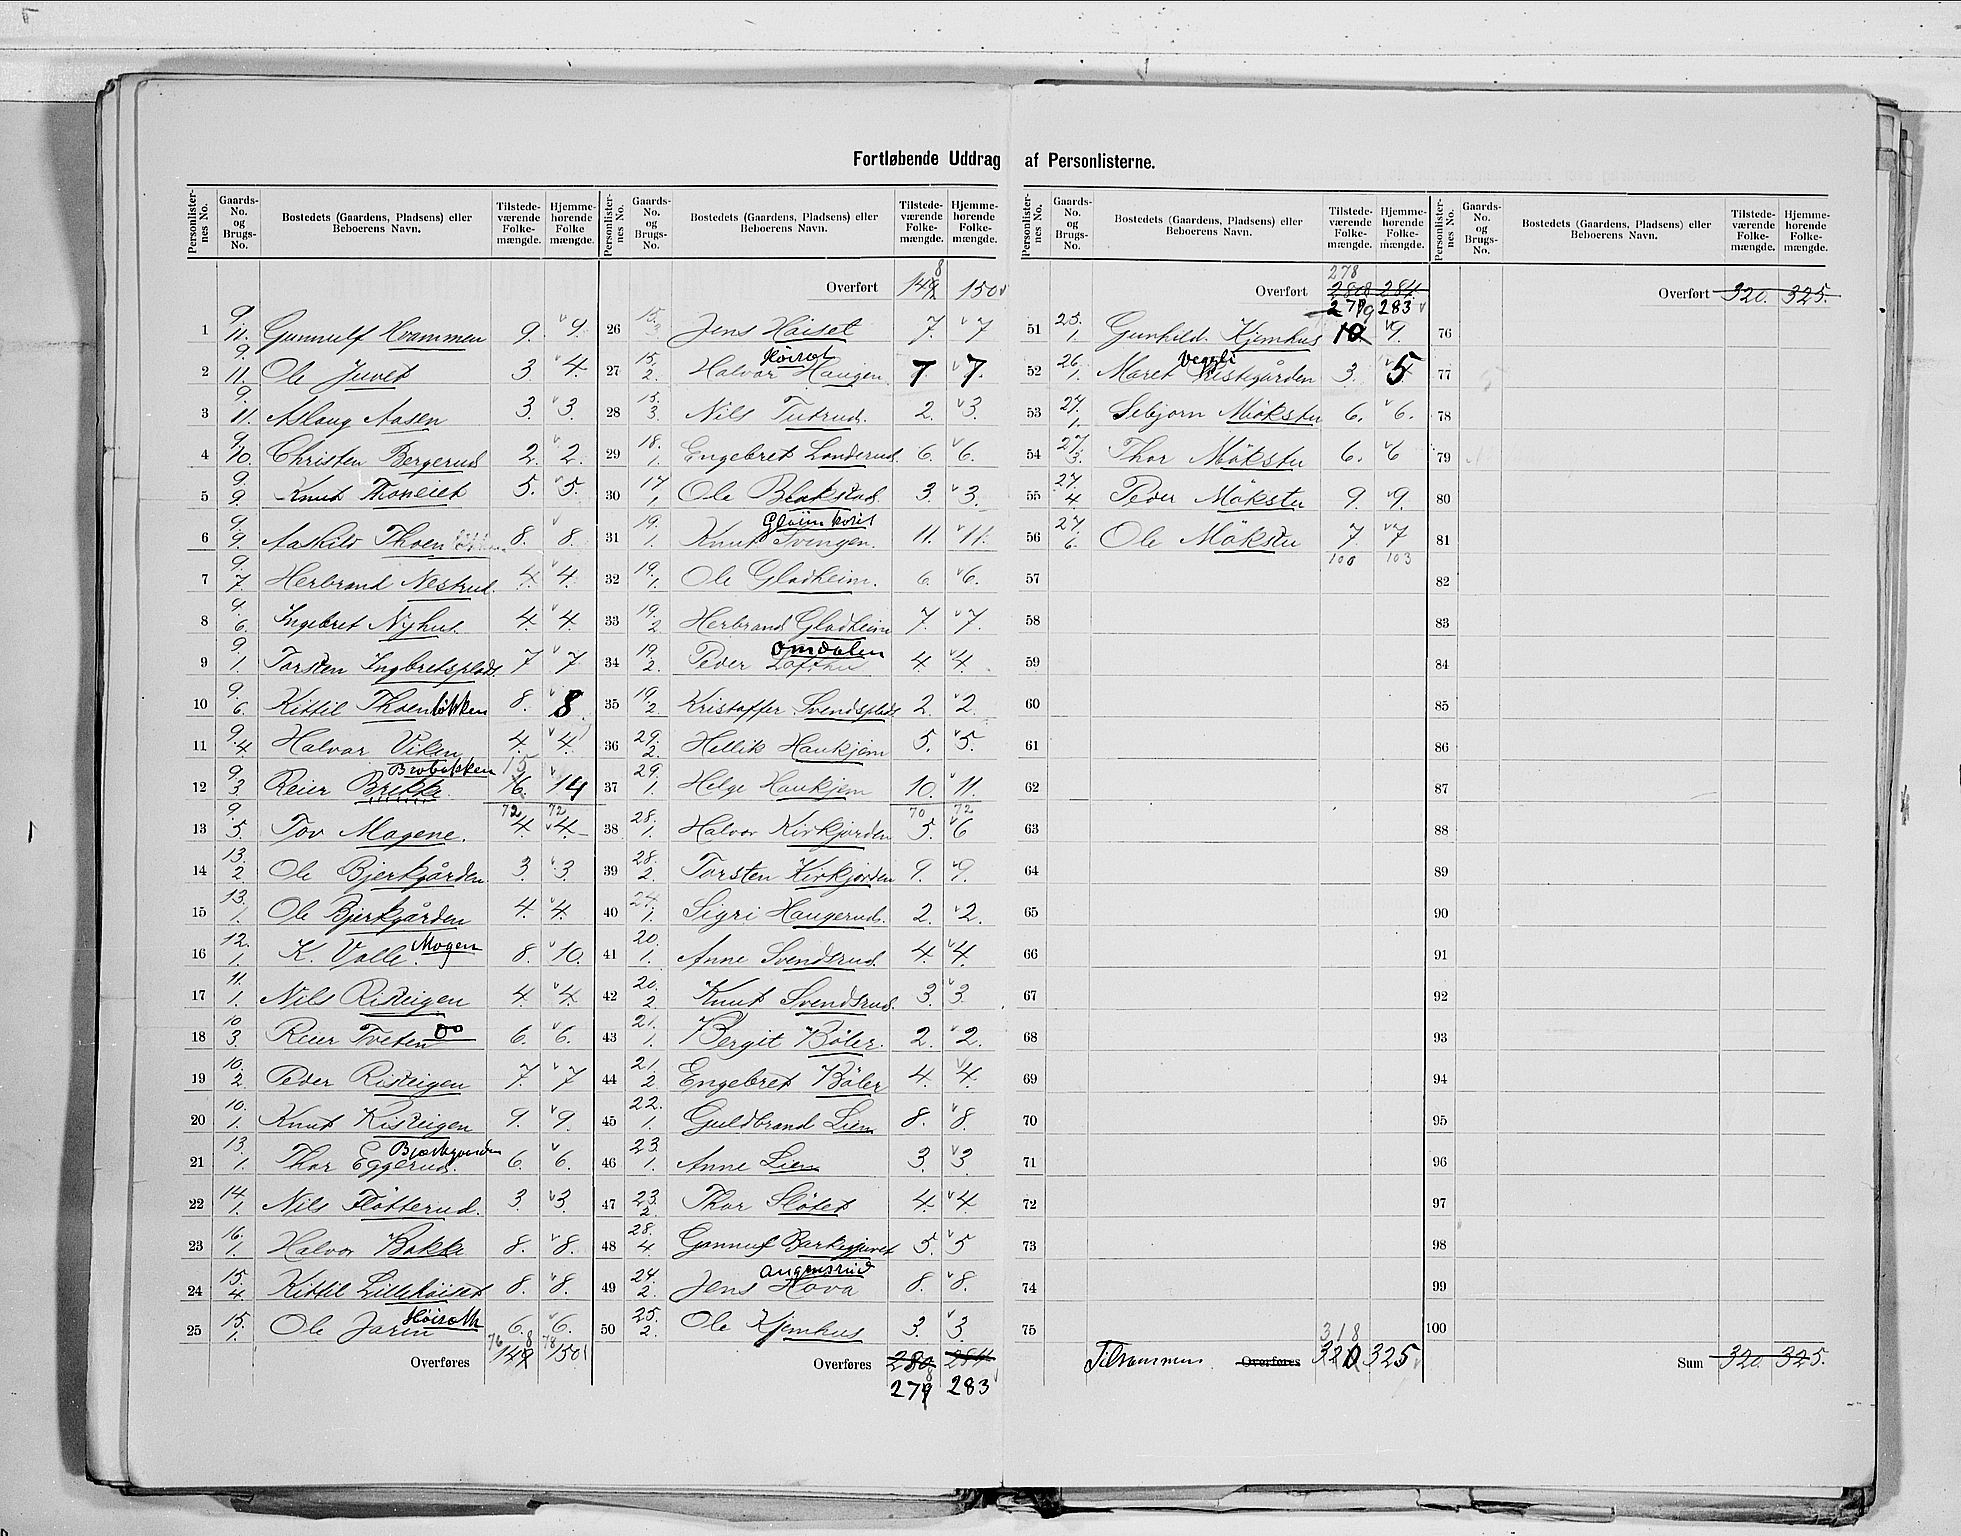 Fortløbende Uddrag af Personlisterne.
Personlisternes No. Gaards-No. og Brugs-No. Bostedets (Gaardens, Pladsens) eller Beboerens Navn. Tilstedeværende Folkemængde. Hjemmehørende Folkemængde.
1 9. 11. Gunnulf Hvammen 9. 9.
2 9. 11. Ole Juvet 3. 4.
3 9. 11. Aslaug Aasen 3. 3.
4 9. 10. Christen Bergerud 2. 2.
5 9. 9. Knut Thoneiet 5. 5.
6 9. 9. Aaskild Thoen 8. 8.
7 9. 7. Herbrand Nestrud. 4. 4.
8 9. 6. Ingebret Nyhus. 4. 4.
9 9. 1. Torsten Ingbretsplads. 7 7
10 9. 6. Kittil Thoenløkken 8. 8
11 9. 4. Halvor Viken 4. 4.
Brobækken 15
12 9. 3 Reier Brekke. 16. 14
72 72
13 9. 5. Tov Mogene. 4. 4.
14 13. 2 Ole Bjerkgården 3. 3.
15 13. 1. Ole Bjerkgården 4. 4.
16 12. 1. K. Valle. Mogen 8. 10.
17 11. 1. Nils Risteigen 4. 4.
18 10. 3. Reier Tveten Do 6. 6.
19 10. 2 Peder Risteigen 7. 7
20 10. 1. Knut Risteigen 9. 9.
Bjerkgaarden
21 13. 1 Thor Eggerud. 6. 6.
22 14. 1. Nils Fløtterud. 3. 3.
23 16. 1. Halvor Bakke 8. 8.
24 15. 4. Kittil Lillehöiset 8. 8.
25 15. 1. Ole Jarin Höiseth 6. 6.
76 8 78
Overføres 149 150
8
Overført 149 150
26 15. 3 Jens Höiset 7. 7
Höiset
27 15. 2. Halvor Haugen. 7 7.
28 15. 3 Nils Tutrud. 2. 3.
29 18. 1. Engebret Londerud. 6. 6.
30 17. 1 Ole Blakstad. 3. 3.
31 19. 1. Knut Svingen. 11. 11.
32 19. 1. Ole Gladheim. 6. 6.
33 19. 2 Herbrand Gladheim 7. 7.
Omdalen
34 19. 2. Peder Lofthus 4. 4.
35 19. 2 Kristoffer Svendsplads 2. 2.
36 29. 2. Hellik Haukjem 5. 5.
37 29. 1. Helge Haukjem 10. 11.
70 72
38 28. 1. Halvor Kirkjorden 5. 6
39 28. 2. Torsten Kirkjorden 9. 9.
40 24. 1. Sigri Haugerud. 2. 2.
41 20. 1. Anne Svendsrud. 4. 4.
42 20. 2. Knut Svendsrud. 3. 3.
43 21. 1. Bergit Böler. 2. 2.
44 21. 2 Engebret Böler 4. 4.
45 22. 1. Guldbrand Lien 8. 8.
46 23. 1. Anne Lien 3. 3.
47 23. 2. Thor Slötet 4. 4.
48 28. 4. Gunnuf Barkegjuvet 5. 5
49 24. 2. Jens Hova 8. 8.
50 25. 2. Ole Kjemhus 3. 3.
Overføres 280 284
8
279 283
278
Overført 280 284
279 283
51 25. 1. Gunhild Kjemhus 10 9.
Veggli
52 26. 1 Maret Prestgården 3. 5
53 27. 1. Sebjorn Mökstu 6. 6.
54 27. 3. Thor Mökstu 6. 6
55 27. 4 Peder Mökstu 9. 9.
56 27. 6. Ole Mökstu 7 7
100 103
57
58
59
60
61
62
63
64
65
66
67
68
69
70
71
72
73
74
75
318
Tilsammen. Overføres 320 325
Overført 320. 325.
76
77
78
79
80
81
82
83
84
85
86
87
88
89
90
91
92
93
94
95
96
97
98
99
100
Sum 320. 325.